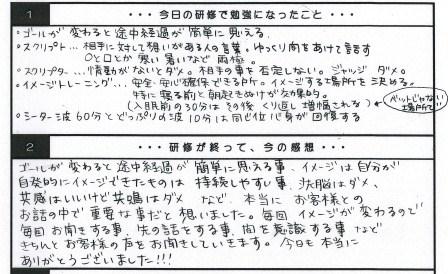 1 ・・・今日の研修で勉強になったこと・・・
・ゴールが変わると途中経過が簡単に見える。
・スクリプト…相手に対して想いがある人の言葉。ゆっくり間をあけて話す
○と口とか 寒い暑いなど 両極。
・スクリプター…情動がないとダメ。相手の事を否定しない。ジャッジ ダメ。
・イメージトレーニング…安全・安心確保できる所。イメージする場所を決める。
特に寝る前と朝起きぬけが効果的。
(入眠前の30分はその後くり返し増幅される) ベットじゃない場所で!!
・シーター波60分とどっぷりの波10分は同じ位心身が回復する
2 ・・・研修が終って、今の感想・・・
ゴールが変わると途中経過が簡単に見える事、イメージは自分が
自発的にイメージできたものは持続しやすい事、洗脳はダメ、
共感はいいけど共鳴はダメ など、本当に お客様との
お話の中で重要な事だと想いました。毎回イメージが変わるので
毎回お聞きする事、先の話をする事、間を意識する事など
きちんとお客様の声をお聞きしていきます。今日も本当に
ありがとうございました!!!